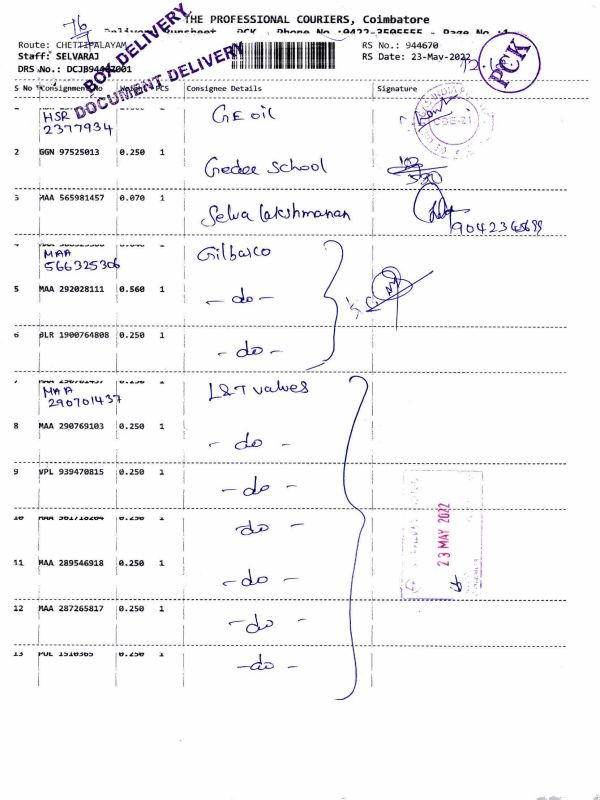 76
THE PROFESSIONAL COURIERS, Coimbatore
Delivery Runsheet - PCK - Phone No :0422-3505555 - Page No :1
Route: CHETTIPALAYAM
RS No.: 944670
Staff: SELVARAJ
RS Date: 23-May-2022
DRS No.:
BOX DELIVERY
DOCUMENT DELIVERY
PCK
S No Consignment No Weight PCS Consignee Details Signature
HSR 2377934 GE oil
2 GGN 97525013 0.250 1 Gedee school
3 MAA 565981457 0.070 1 Selva lakshmanan
9042365699
4 MAA 566325306 Gilbarco
5 MAA 292028111 0.560 1 - do -
6 BLR 1900764808 0.250 1 - do -
7 MAA 290701437 L&T valves
8 MAA 290769103 0.250 1 - do -
9 VPL 939470815 0.250 1 - do -
10 MAA 561718264 0.250 1 - do -
11 MAA 289546918 0.250 1 - do -
12 MAA 287265817 0.250 1 - do -
13 POL 1510365 0.250 1 - do -
23 MAY 2022